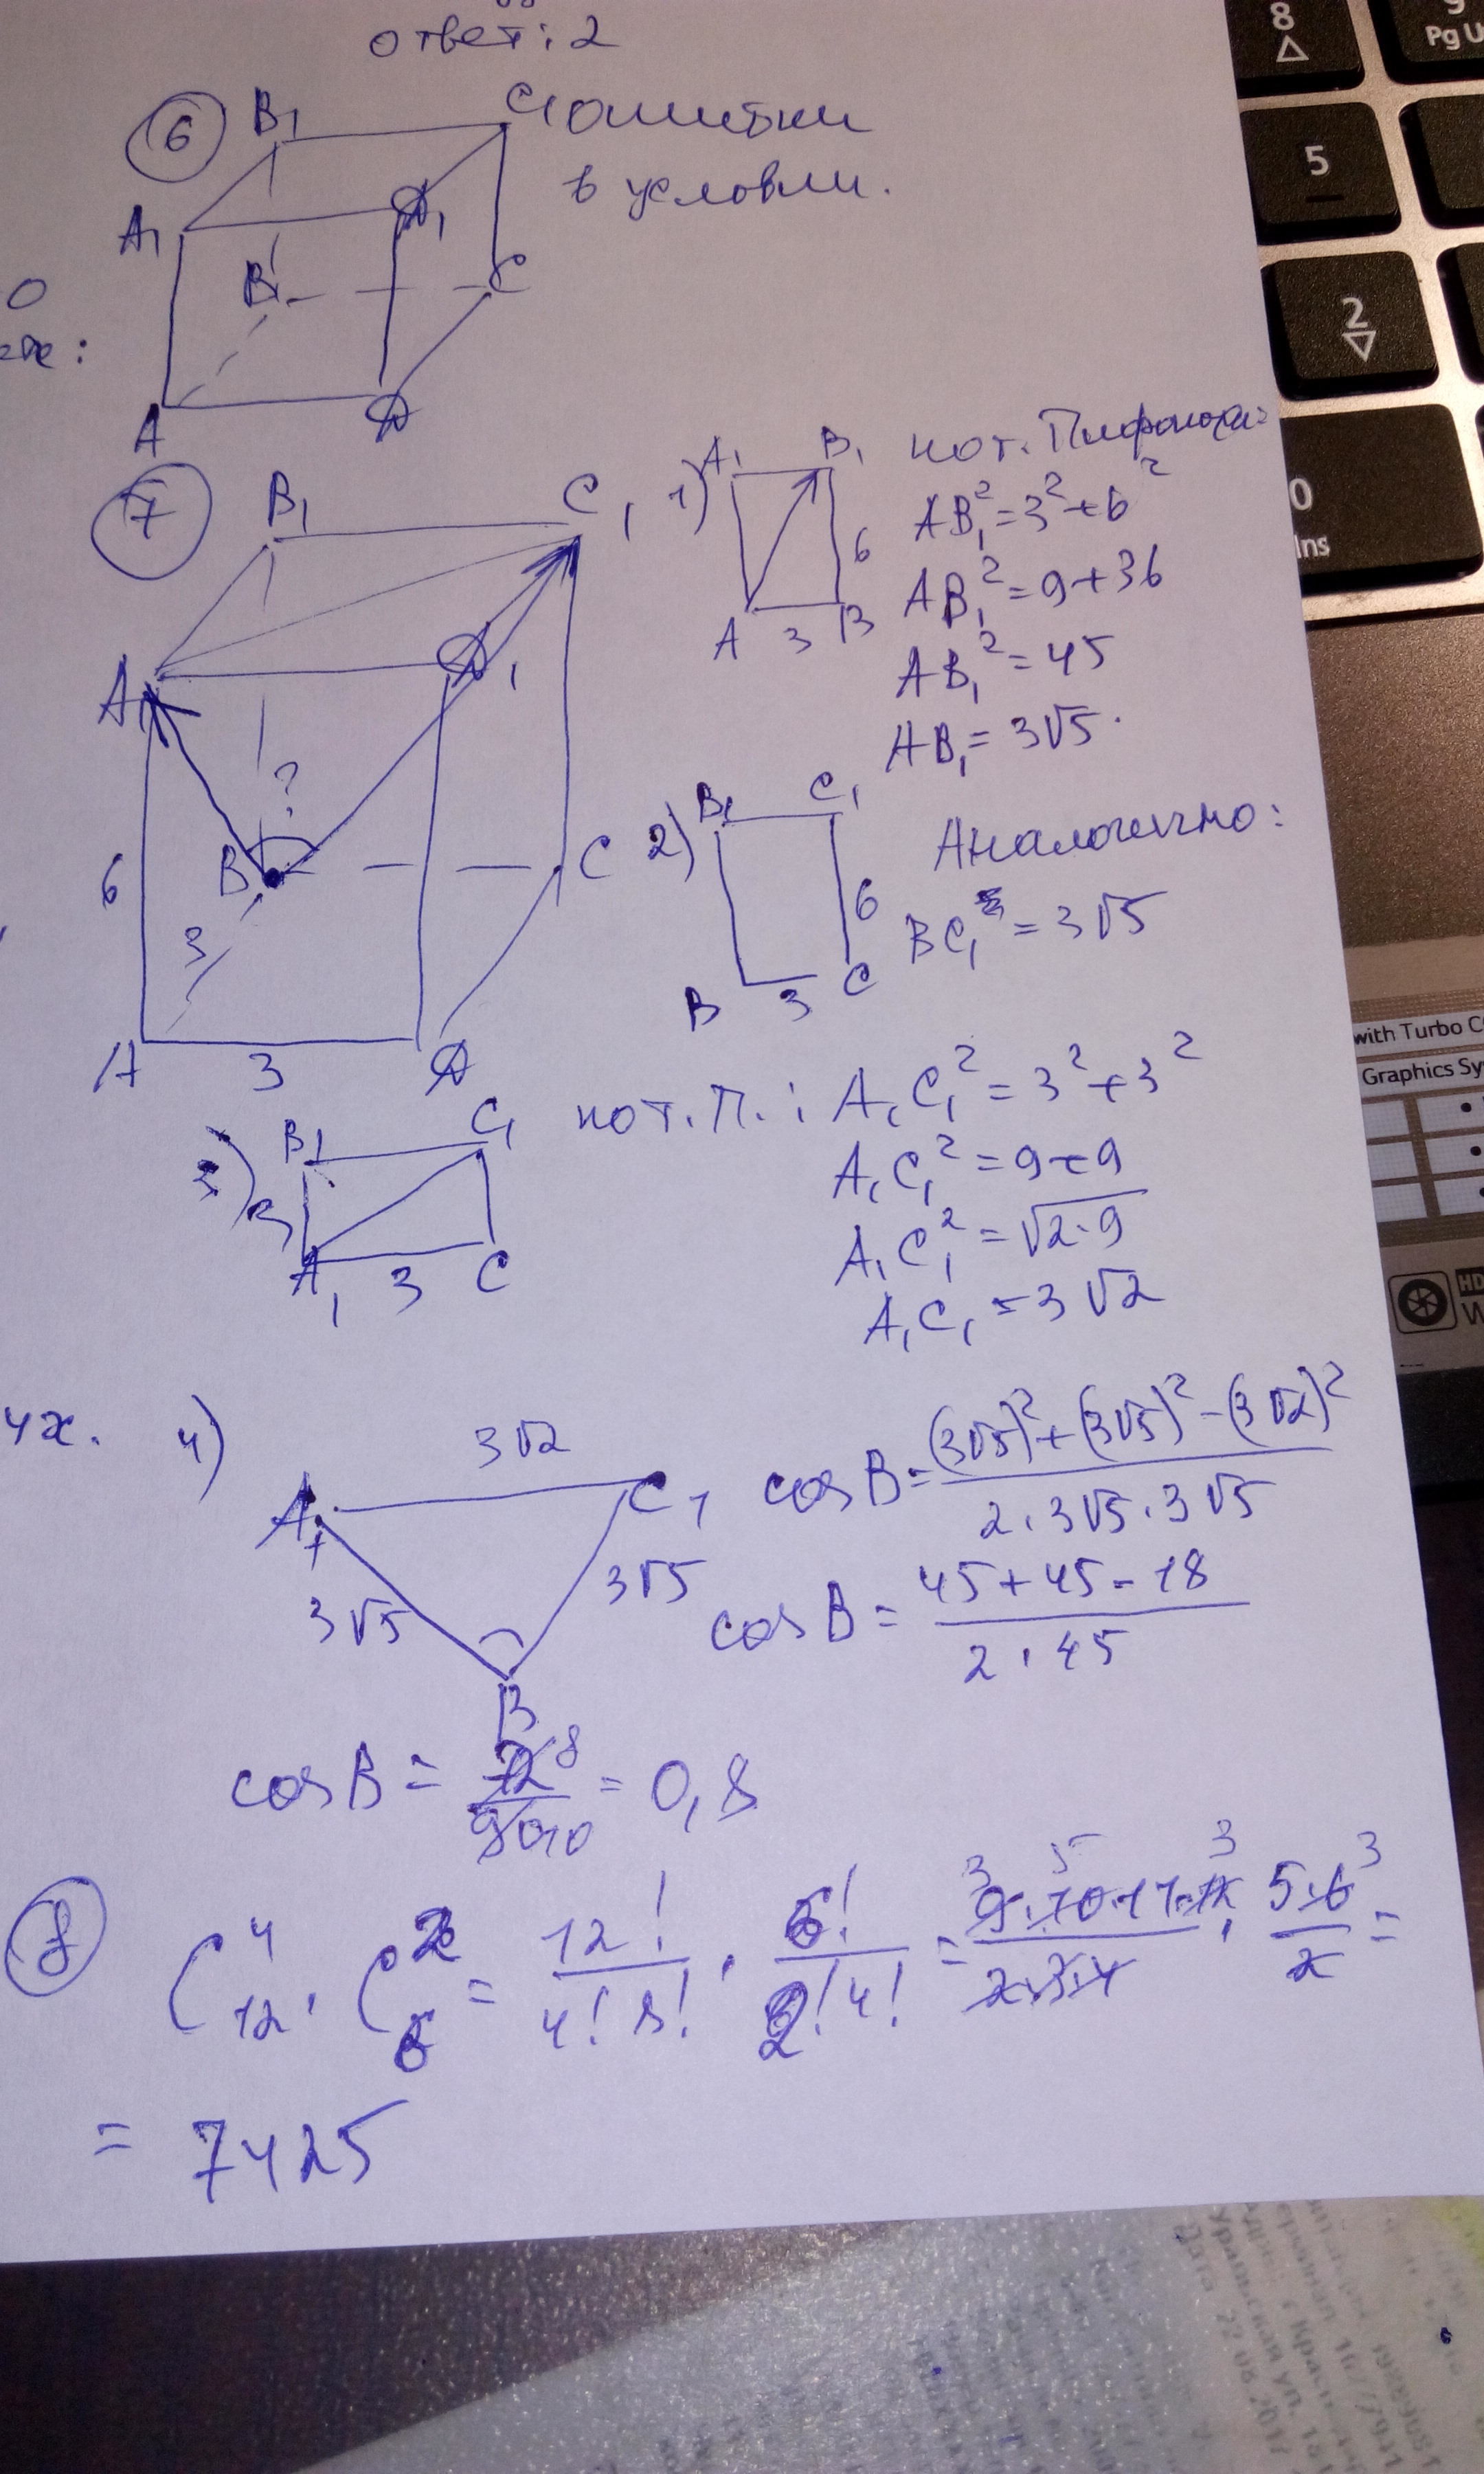 ответ: 2
6
B1
C1
ошибки
в условии.
A1
D1
B
C
A
D
7
B1
C1
A1
D1
?
6
B
C
3
A
3
D
1)
A1 B1
6
A 3 B
по т. Пифагора:
AB1² = 3² + 6²
AB1² = 9 + 36
AB1² = 45
AB1 = 3√5.
2)
B1 C1
6
B 3 C
Аналогично:
BC1 = 3√5
3)
B1 C1
3
A1 3 C
по т. П.: A1C1² = 3² + 3²
A1C1² = 9 + 9
A1C1² = √2·9
A1C1 = 3√2
4х.
4)
3√2
A1 C1
3√5 3√5
B
cos B = ((3√5)² + (3√5)² - (3√2)²) / (2·3√5·3√5)
cos B = (45 + 45 - 18) / (2·45)
cos B = 72 8 / 90 10 = 0,8
8
C₁₂⁴ · C₆² = 12! / 4! 8! · 6! / 2! 4! = 9·10·11·12 / 2·3·4 · 5·6 / 2 =
= 7425
8
Pg U
5
2
0
Ins
with Turbo
Graphics Sy
HD